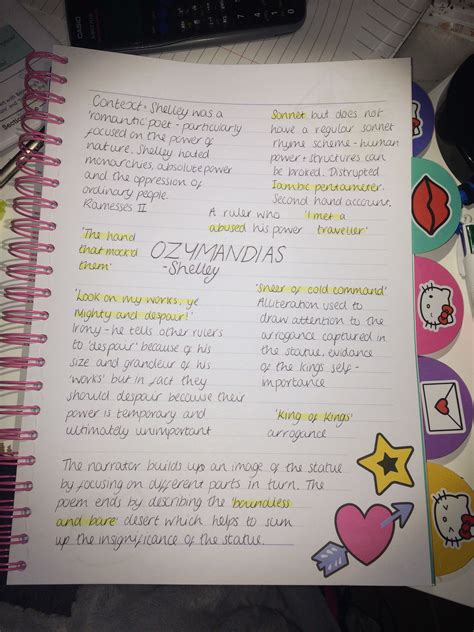 Context - Shelley was a
'romantic poet' - particularly
focused on the power of
nature. Shelley hated
monarchies, absolute power
and the oppression of
ordinary people.
Ramesses II
Sonnet but does not
have a regular sonnet
rhyme scheme - human
power + structures can
be broked. Distrupted
Iambic pentameter.
Second hand account.
'I met a
traveller'
A ruler who
abused his power
'The hand
that mock'd
them'
OZYMANDIAS
-Shelley
'Look on my works, ye
Mighty and despair!'
Irony - he tells other rulers
to 'despair' because of his
size and grandeur of his
'works' but in fact they
should despair because their
power is temporary and
ultimately unimportant
'Sneer of cold command'
Alliteration used to
draw attention to the
arrogance captured in
the statue, evidance
of the kings self-
importance
'King of Kings'
arrogance
The narrator builds up an image of the statue
by focusing on different parts in turn. The
poem ends by describing the 'boundless
and bare' desert which helps to sum
up the insignificance of the statue.
CASIO